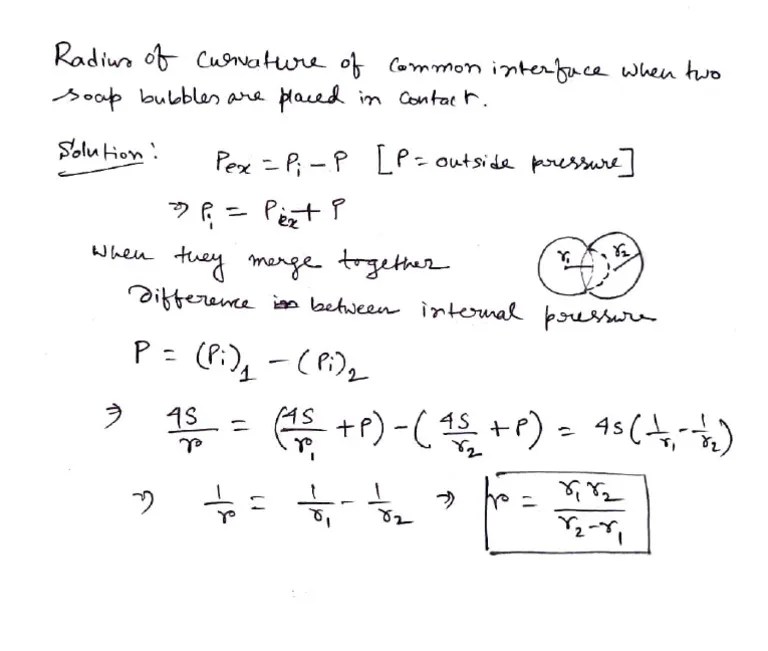 Radius of curvature of common interface when two
soap bubbles are placed in contact.
Solution: Pex = Pi - P [P = outside pressure]
⇒ Pi = Pex + P
When they merge together
r1 r2
Difference between internal pressure
P = (Pi)1 - (Pi)2
⇒ 4S/r = (4S/r1 + P) - (4S/r2 + P) = 4S(1/r1 - 1/r2)
⇒ 1/r = 1/r1 - 1/r2 ⇒ r = r1 r2/r2-r1